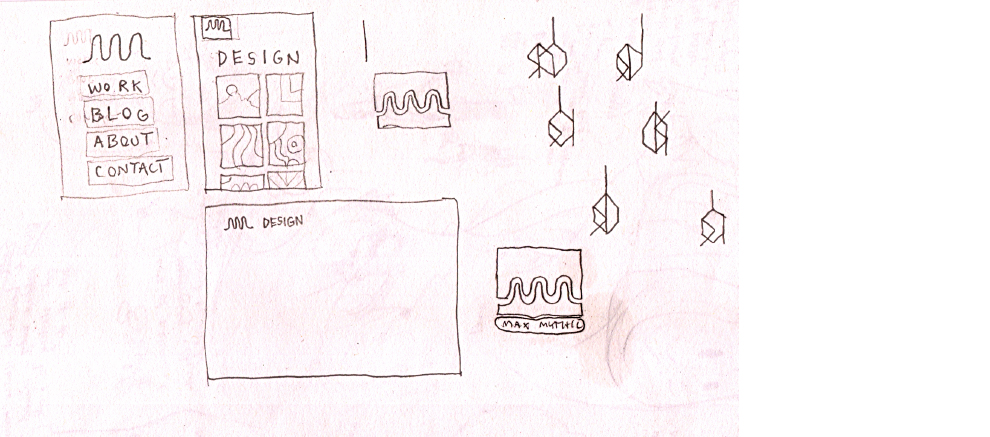 WORK
BLOG
ABOUT
CONTACT
DESIGN
DESIGN
MAX